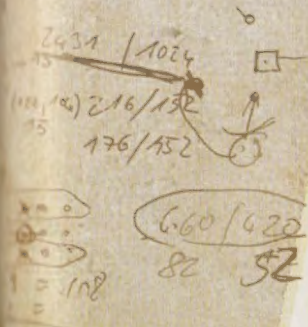 2431 / 1024
15
216/152
15
176/152
660/420
82 52
= 108
=